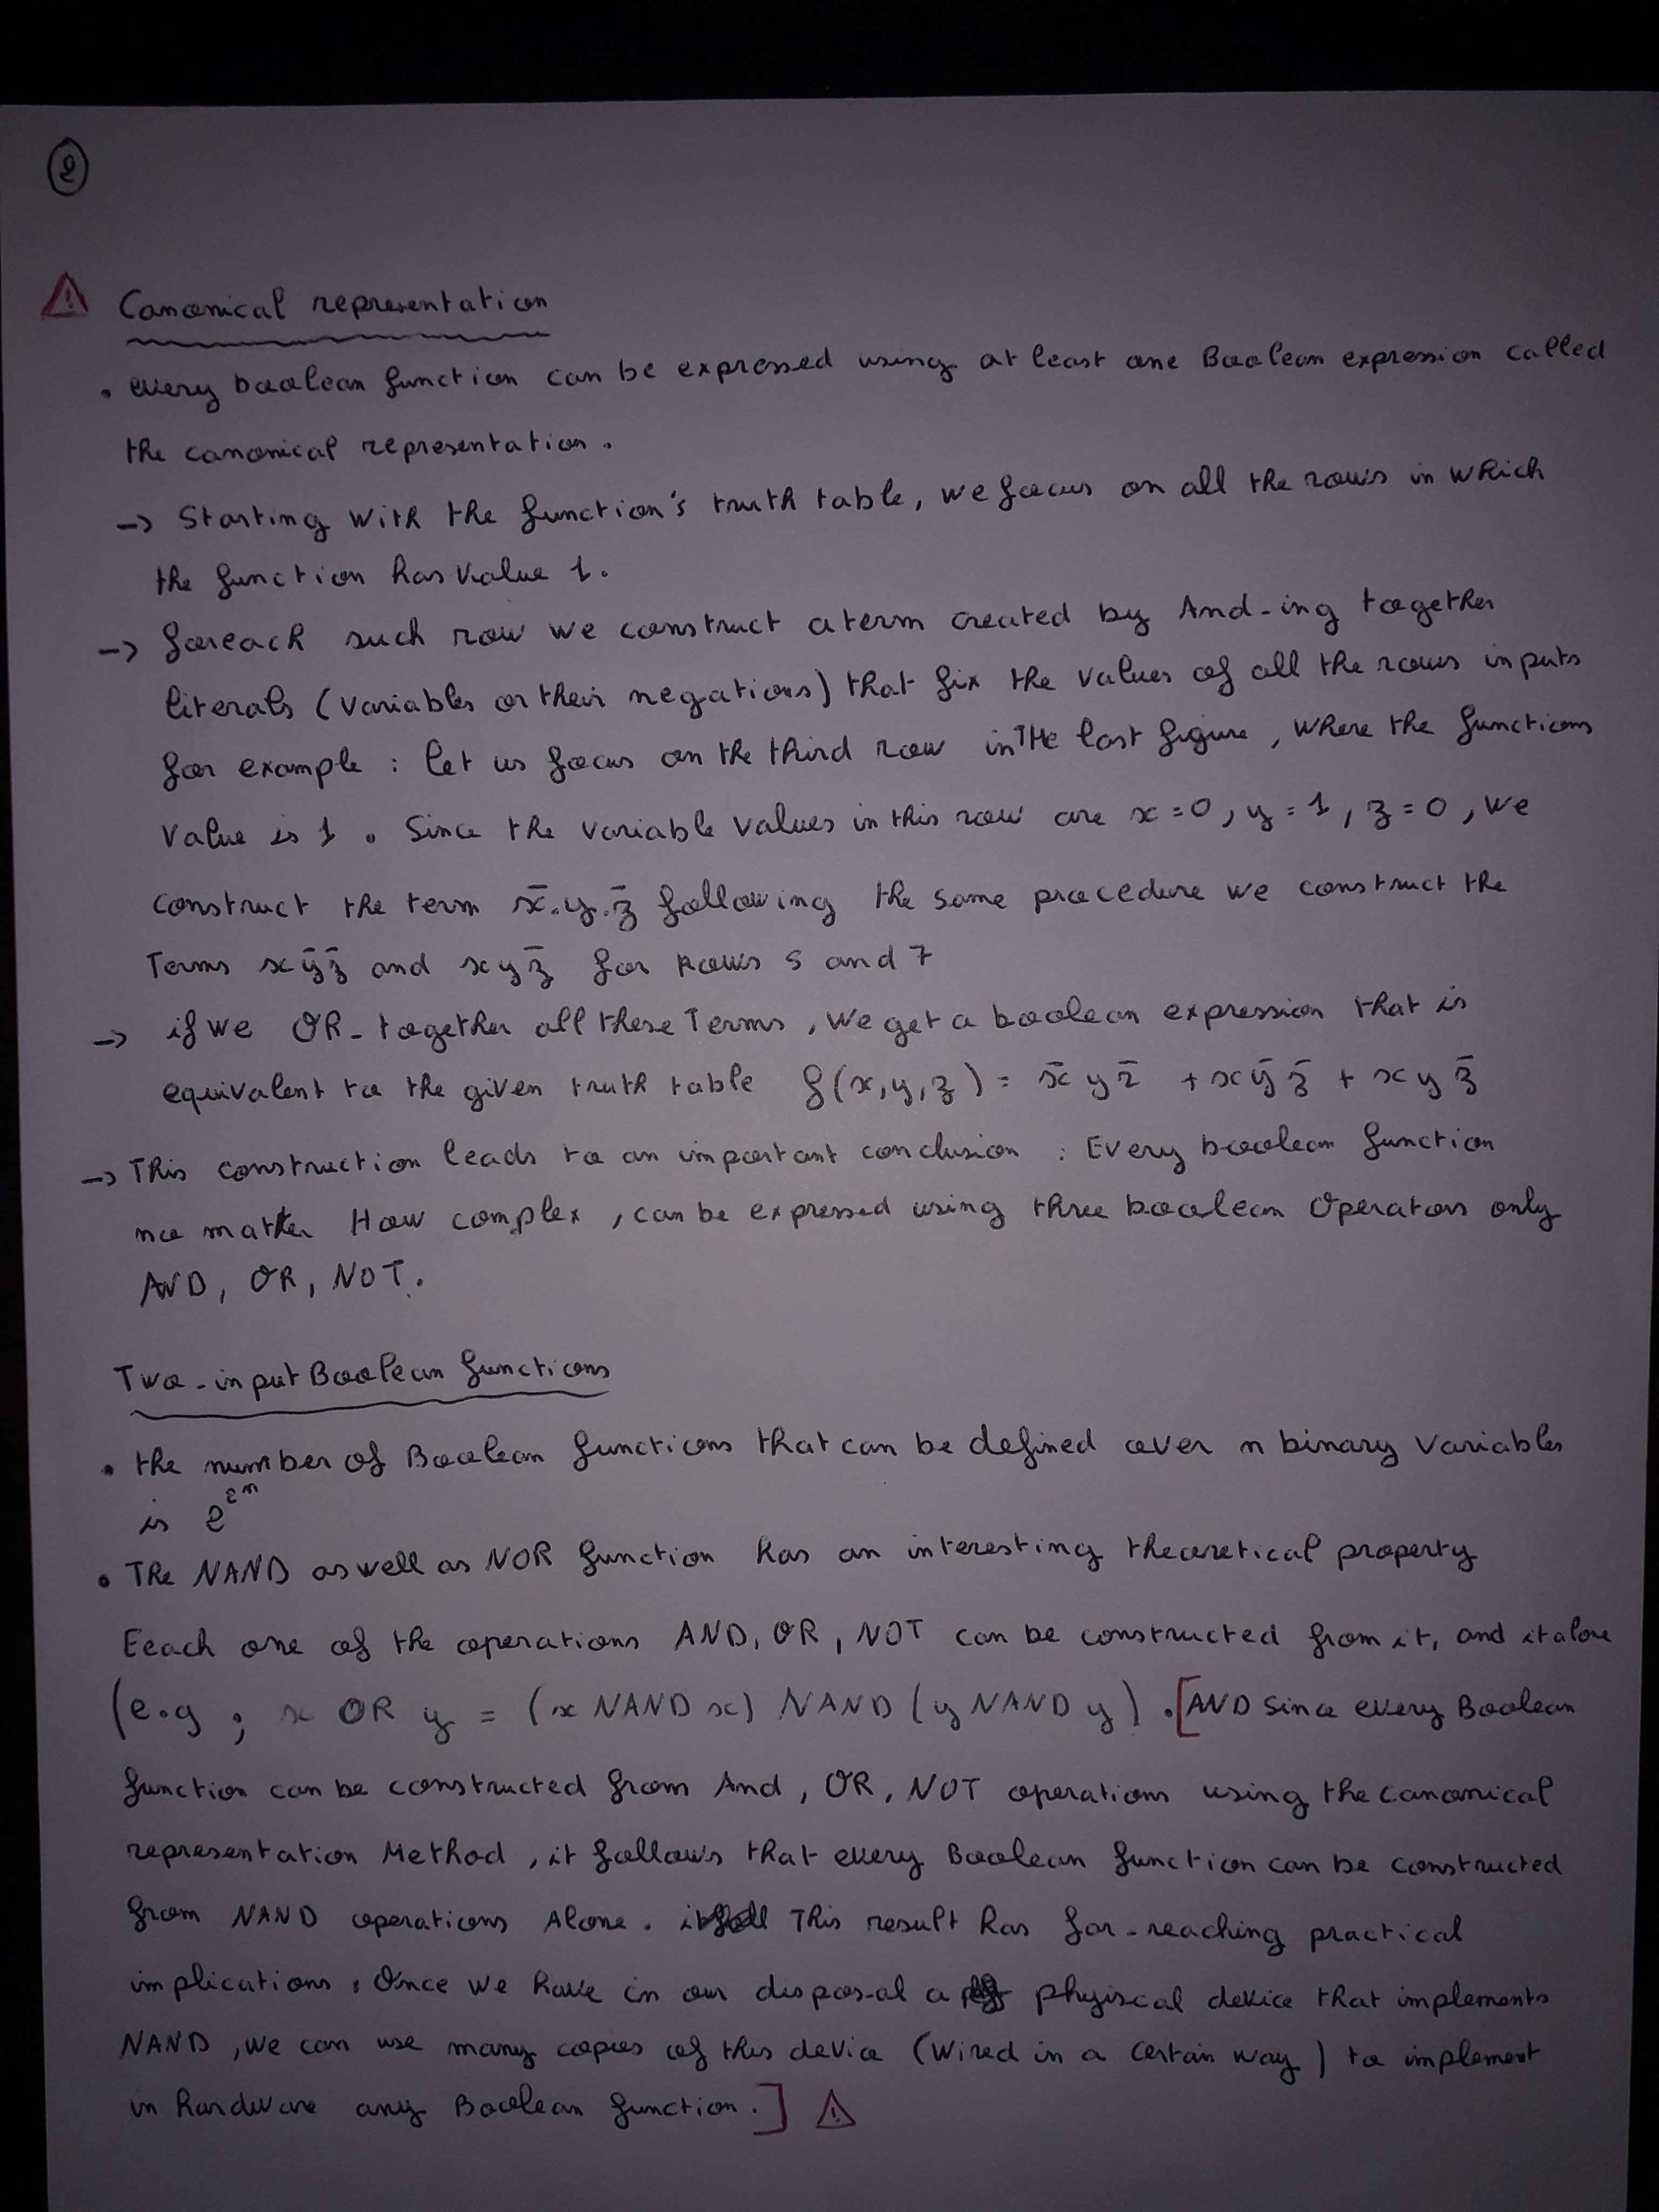 2
Canonical representation
. every boolean function can be expressed using at least one Boolean expression called
the canonical representation.
-> Starting with the function's truth table, we focus on all the rows in which
the function has value 1.
-> foreach such row we construct a term created by And-ing together
literals (variables or their negations) that fix the values of all the rows inputs
for example : let us focus on the third row in THe last figure, where the functions
value is 1. Since the variable values in this row are x=0, y=1, z=0, we
construct the term x̄.y.z̄ following the same procedure we construct the
Terms xȳz̄ and xyz̄ for rows 5 and 7
-> if we OR-together all these Terms, we get a boolean expression that is
equivalent to the given truth table f(x,y,z) = x̄yz̄ + xȳz̄ + xyz̄
-> This construction leads to an important conclusion : Every boolean function
no matter How complex, can be expressed using three boolean Operators only
AND, OR, NOT.
Two-input Boolean functions
. the number of Boolean functions that can be defined over n binary variables
is 2^2^n
. The NAND as well as NOR function has an interesting theoretical property
Eeach one of the operations AND, OR, NOT can be constructed from it, and it alone
(e.g ; x OR y = (x NAND x) NAND (y NAND y) . [AND Since every Boolean
function can be constructed from And, OR, NOT operations using the canonical
representation Method, it follows that every Boolean function can be constructed
from NAND operations Alone. This result has far-reaching practical
implications : Once we have in our disposal a phyiscal device that implements
NAND, we can use many copies of this device (wired in a certain way) to implement
in hardware any Boolean function.]